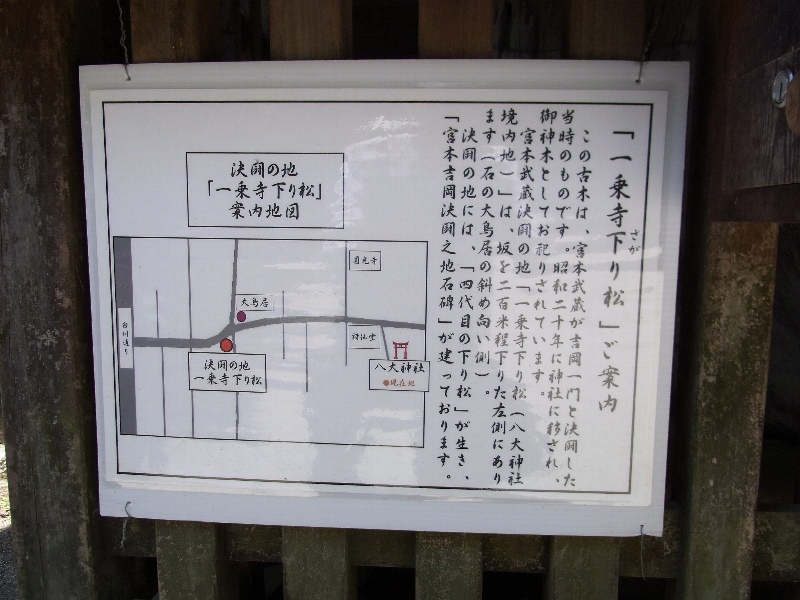 「一乗寺下り松」ご案内
さが
この古木は、宮本武蔵が吉岡一門と決闘した
当時のものです。昭和二十年に神社に移され、
御神木としてお祀りされています。
宮本武蔵決闘の地「一乗寺下り松（八大神社
境内地）」は、坂を二百米程下りた左側にあり
ます（石の大鳥居の斜め向い側）。
決闘の地には、「四代目の下り松」が生き、
「宮本吉岡決闘之地石碑」が建っております。
決闘の地
「一乗寺下り松」
案内地図
圓光寺
大鳥居
白川通り
詩仙堂
決闘の地
一乗寺下り松
八大神社
●現在地